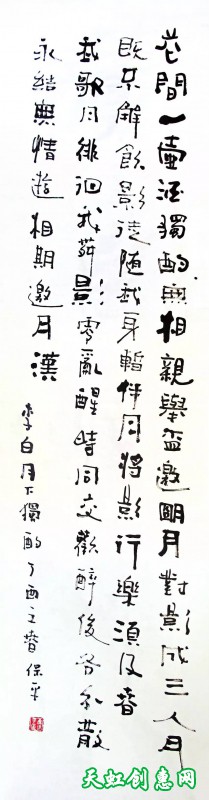 花間一壺酒獨酌無相親舉盃邀朙月對影成三人月
既不解飲影徒隨我身暫伴月將影行樂須及春
我歌月徘徊我舞影零亂醒時同交歡醉後各分散
永結無情遊相期邀月漢
李白月下獨酌丁酉立春保平
天虹创意网